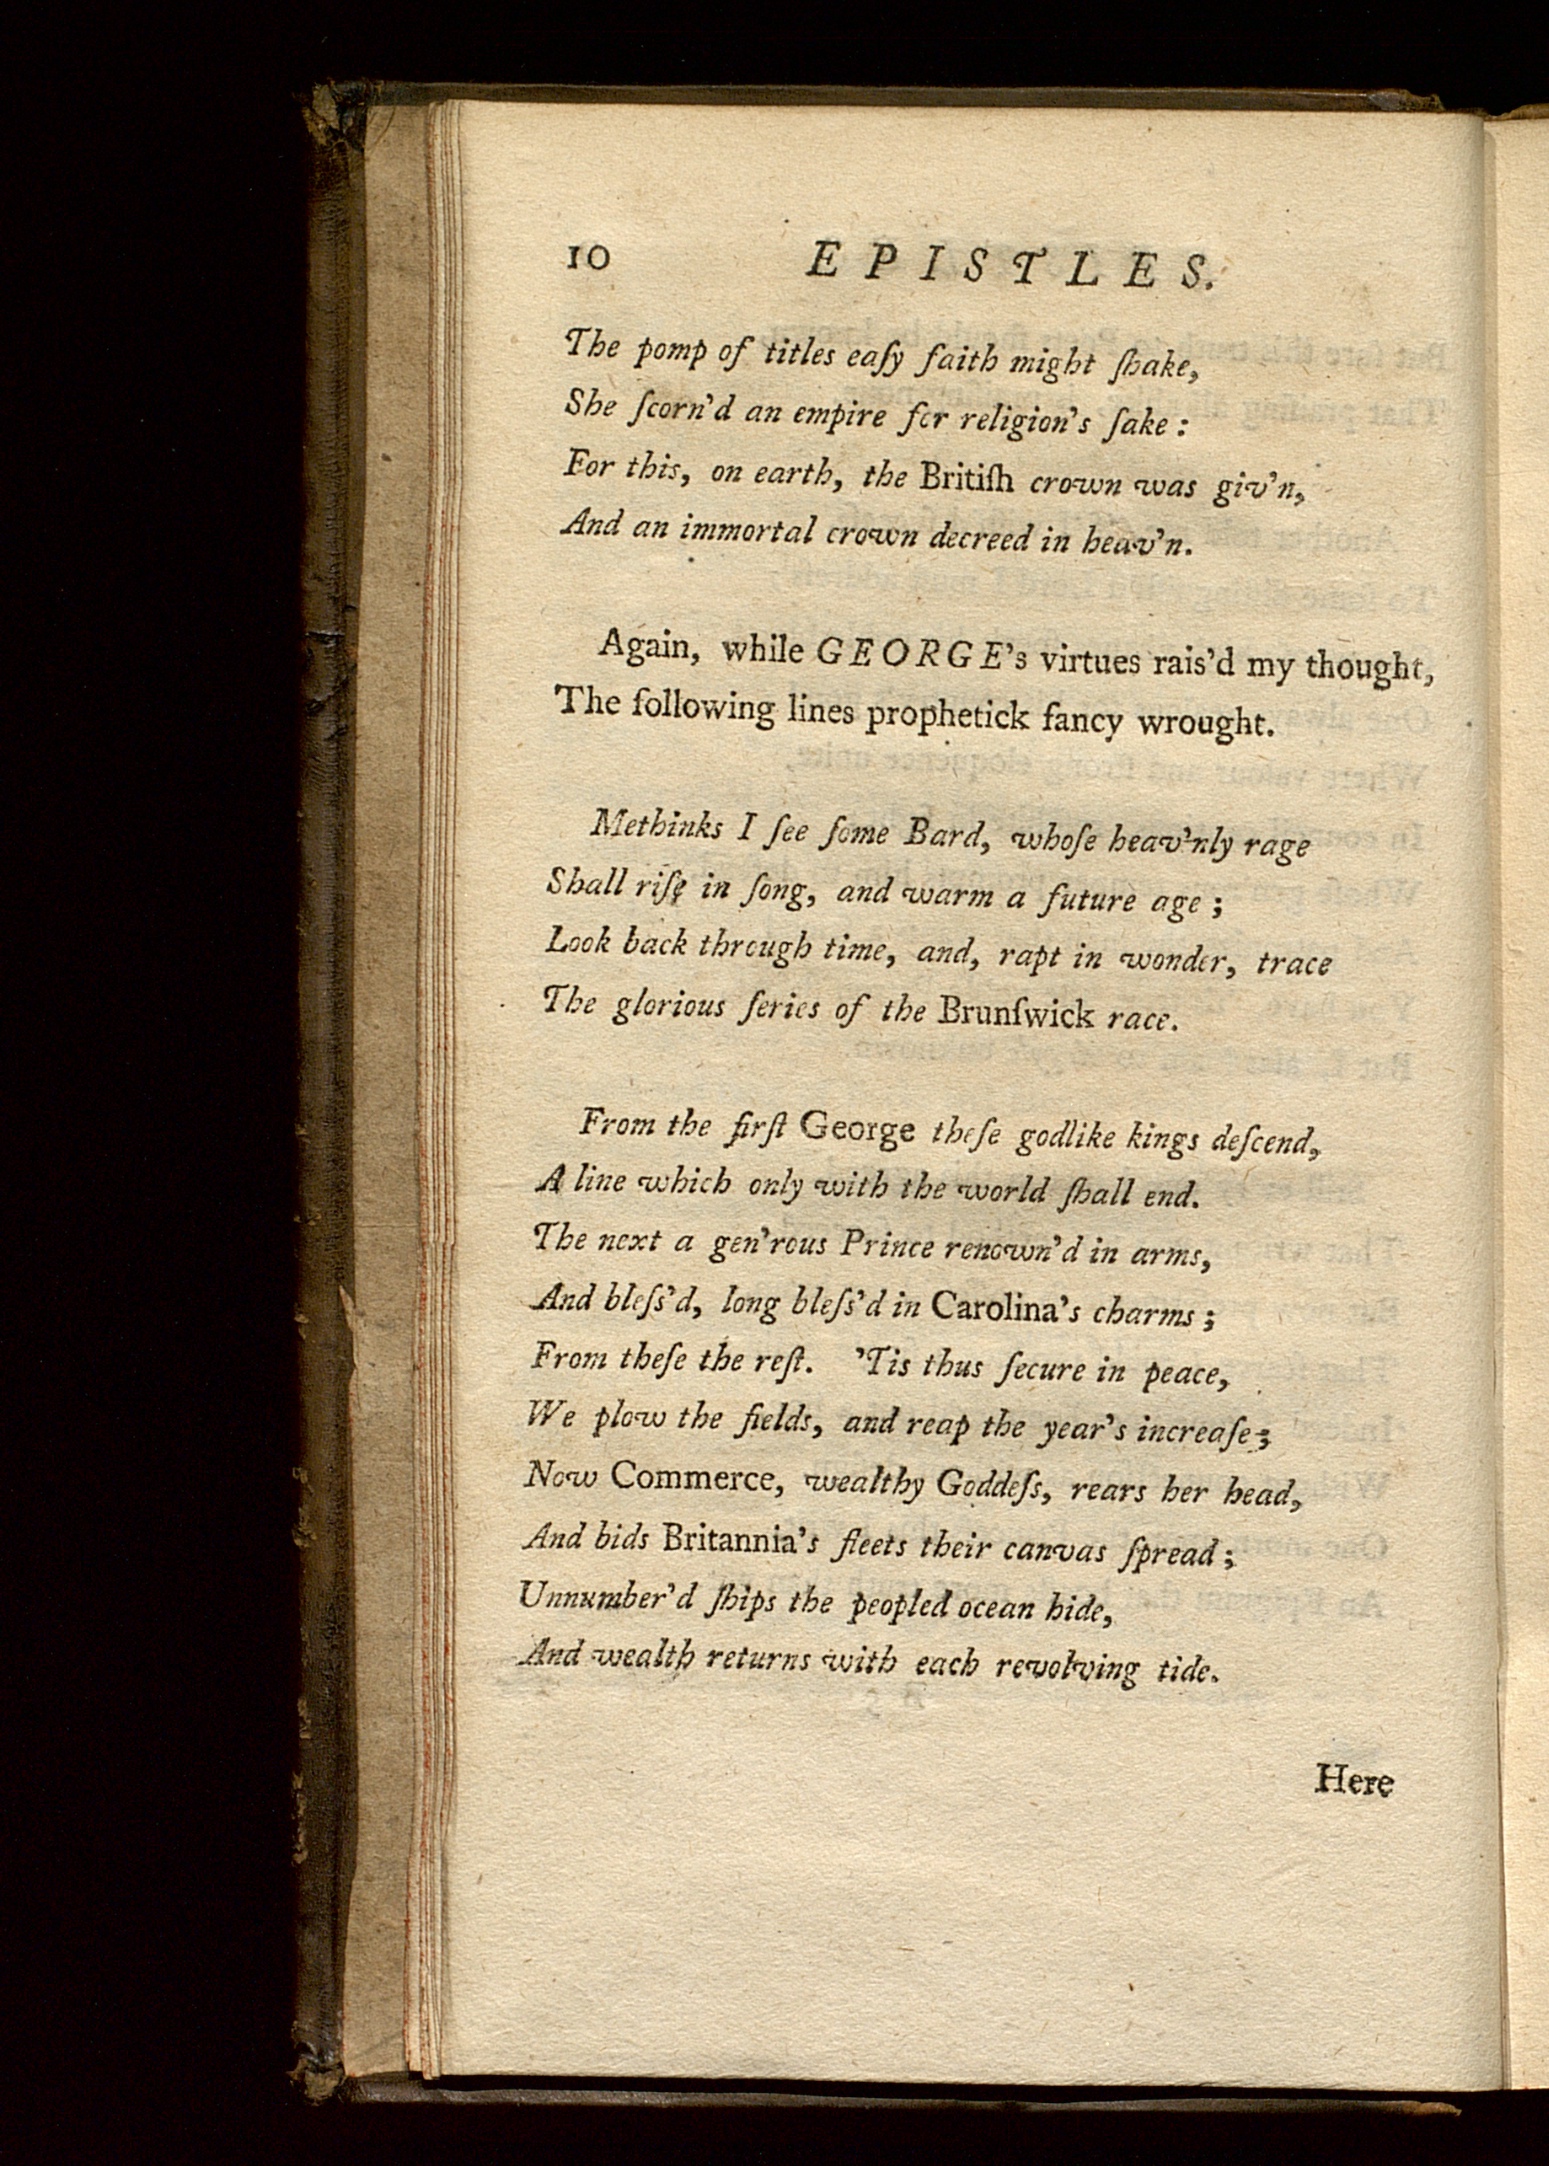 10 EPISTLES.
The pomp of titles eaſy faith might ſhake,
She ſcorn'd an empire for religion's ſake :
For this, on earth, the Britiſh crown was giv'n,
And an immortal crown decreed in heav'n.
Again, while GEORGE's virtues rais'd my thought,
The following lines prophetick fancy wrought.
Methinks I ſee ſome Bard, whoſe heav'nly rage
Shall riſe in ſong, and warm a future age ;
Look back through time, and, rapt in wonder, trace
The glorious ſeries of the Brunſwick race.
From the firſt George theſe godlike kings deſcend,
A line which only with the world ſhall end.
The next a gen'rous Prince renown'd in arms,
And bleſs'd, long bleſs'd in Carolina's charms ;
From theſe the reſt. 'Tis thus ſecure in peace,
We plow the fields, and reap the year's increaſe ;
Now Commerce, wealthy Goddeſs, rears her head,
And bids Britannia's fleets their canvas ſpread ;
Unnumber'd ſhips the peopled ocean hide,
And wealth returns with each revolving tide.
Here